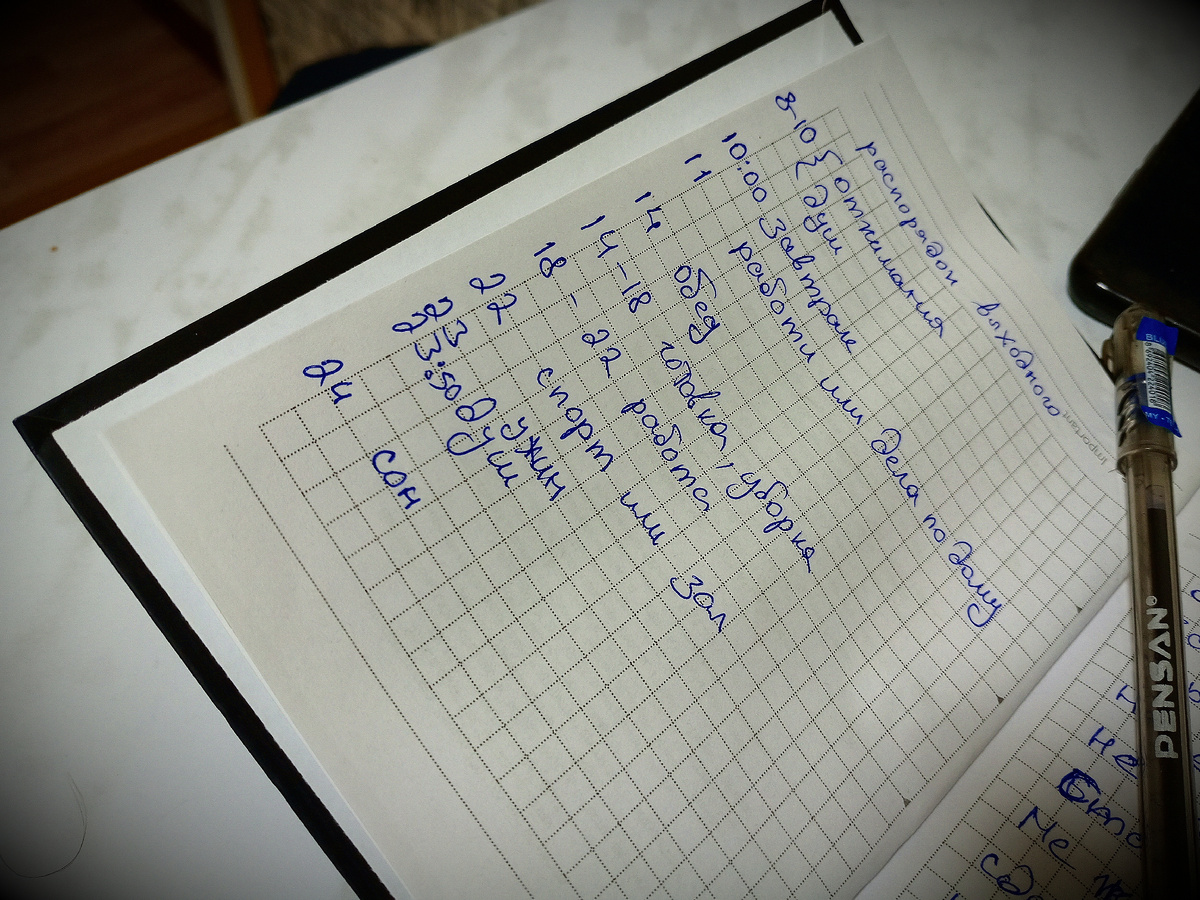 распорядок выходного
8-10 { отжимания
{ душ
10:00 завтрак
11 работа или дела по дому
14 обед
14-18 готовка, уборка
18 - 22 работа
22 спорт или зал
23 ужин
23:50 душ
24 сон
Important
PENSAN®
не